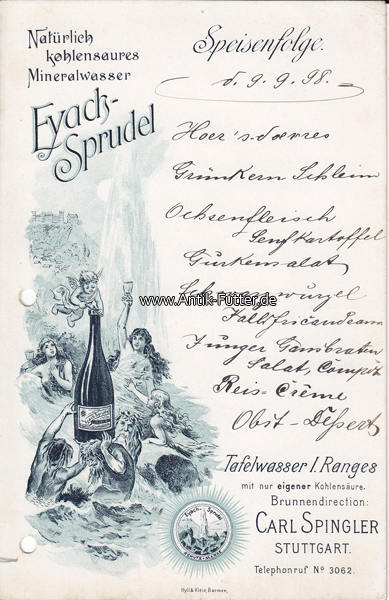 Natürlich
kohlensaures
Mineralwasser
Eyach-
Sprudel
Speisenfolge.
d. 9. 9. 98.
Hoer's-dœvres
Grünkern Schleim
Ochsenfleisch
Senfkartoffel
Gurkensalat
www.Antik-Fütter.de
Schwarzwurzel
Kalbfricandeau
Junger Gansbraten
Salat, Compot
Reis-Crème
Obst-Dessert
Tafelwasser I. Ranges
mit nur eigener Kohlensäure.
Brunnendirection:
CARL SPINGLER
STUTTGART.
Telephonruf No 3062.
Eyach-Sprudel
SCHUTZ-MARKE
Hyll & Klein, Barmen.